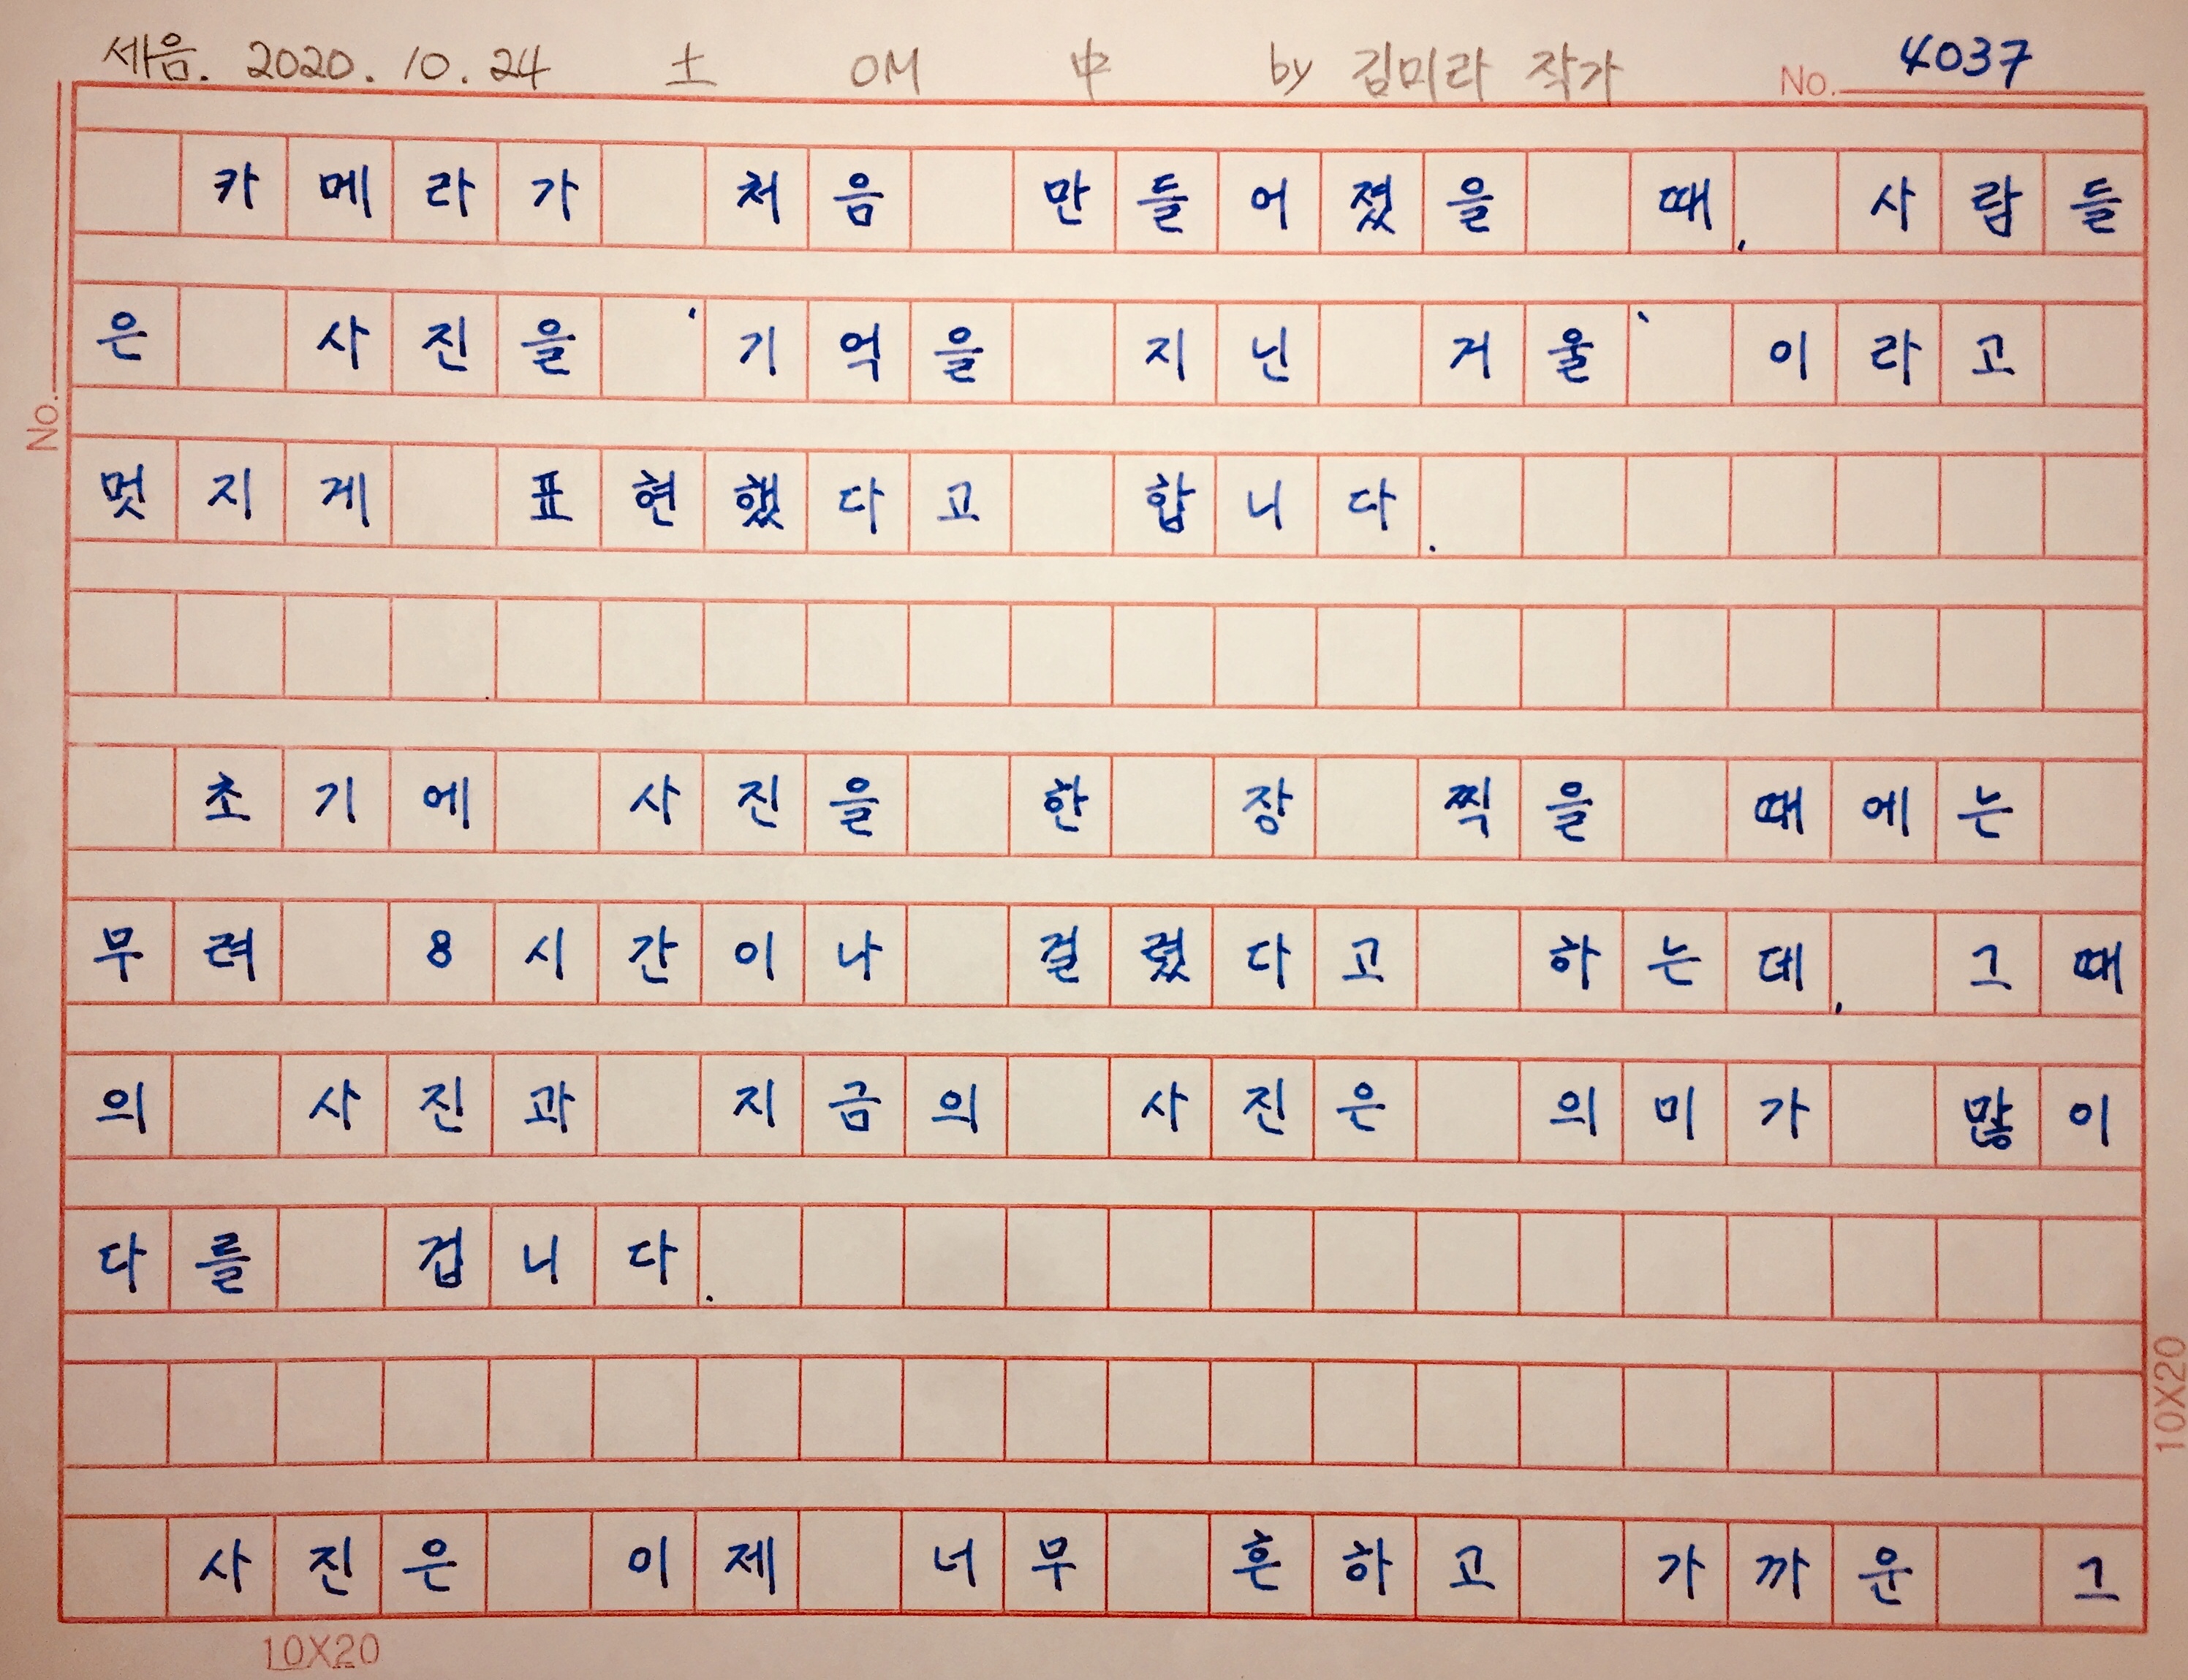 세음. 2020. 10. 24 土 OM 中 by 김미라 작가 No. 4037
카메라가 처음 만들어졌을 때, 사람들
은 사진을 '기억을 지닌 거울'이라고
멋지게 표현했다고 합니다.
초기에 사진을 한 장 찍을 때에는
무려 8시간이나 걸렸다고 하는데, 그때
의 사진과 지금의 사진은 의미가 많이
다를 겁니다.
사진은 이제 너무 흔하고 가까운 그
No.
10X20
10X20